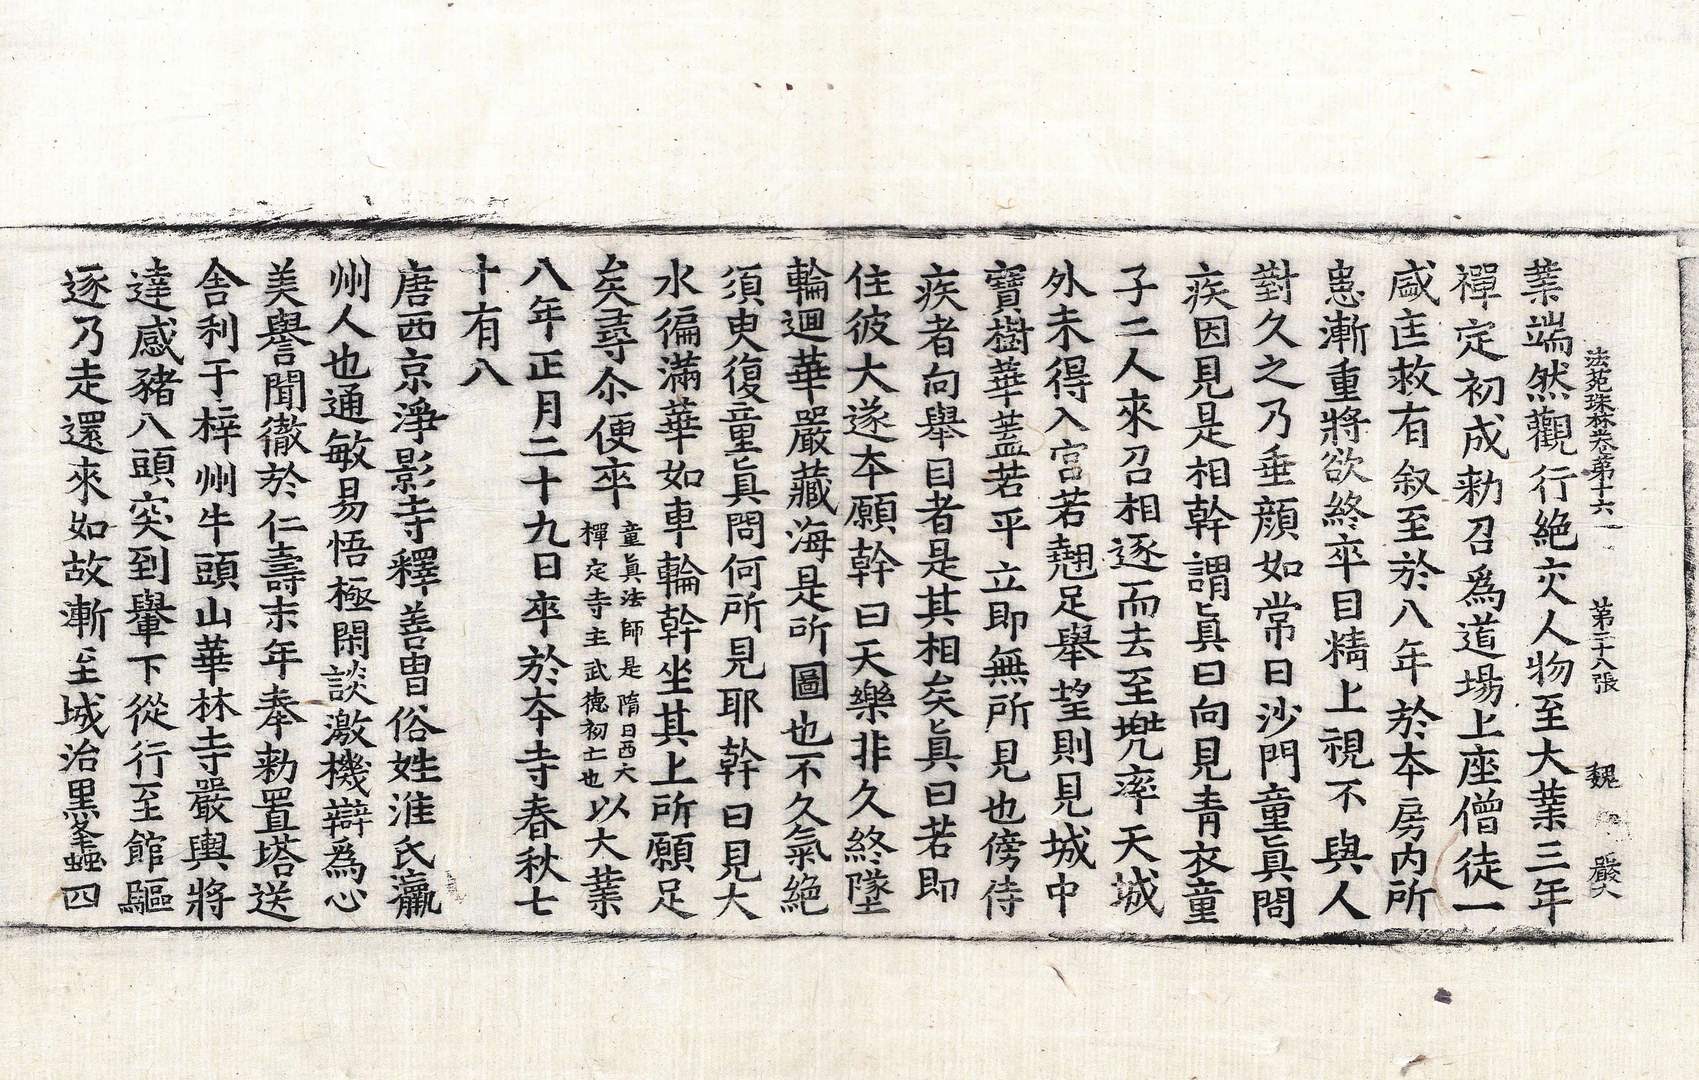 法苑珠林卷第十六　第三十八張　魏　嚴六
業端然觀行絶交人物至大業三年
禪定初成勑召爲道場上座僧徒一
盛匡救有叙至於八年於本房内所
患漸重將欲終卒目精上視不與人
對久之乃垂顔如常日沙門童眞問
疾因見是相幹謂眞曰向見靑衣童
子二人來召相逐而去至兠率天城
外未得入宫若翹足舉望則見城中
寶樹華蓋若平立即無所見也傍侍
疾者向舉目者是其相矣眞曰若即
住彼大遂本願幹曰天樂非久終墜
輪迴華嚴藏海是所圖也不久氣絶
須臾復童眞問何所見耶幹曰見大
水徧滿華如車輪幹坐其上所願足
矣尋尒便卒童眞法師是隋日西大禪定寺主武德初士也以大業
八年正月二十九日卒於本寺春秋七
十有八
唐西京淨影寺釋善胄俗姓淮氏瀛
州人也通敏易悟極閑談激機辯為心
美譽聞徹於仁壽末年奉勑置塔送
舍利于梓州牛頭山華林寺嚴輿將
達感豬八頭突到轝下從行至館驅
逐乃走還來如故漸至城治黑蜂四